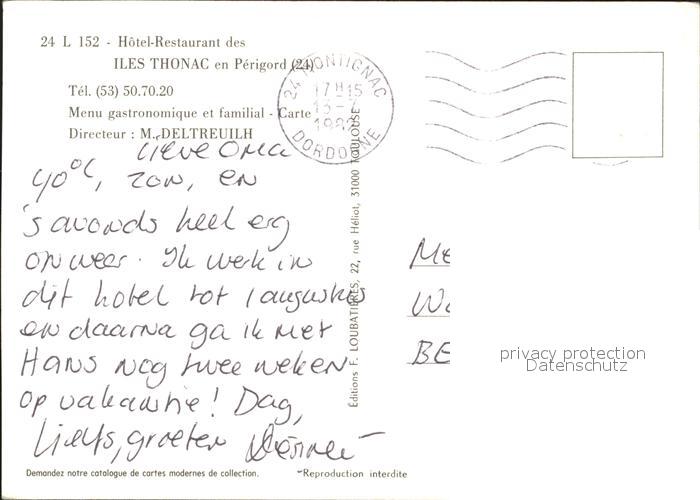 24 L 152 - Hôtel-Restaurant des
ILES THONAC en Périgord (24)
Tél. (53) 50.70.20
Menu gastronomique et familial - Carte
Directeur : M. DELTREUILH
24 MONTIGNAC
17H15
13-7
DORDOGNE
Lieve Oma
40°C, zon, en
's avonds heel erg
onweer. Ik werk in
dit hotel tot 1 augustus
en daarna ga ik met
Hans nog twee weken
op vakantie! Dag,
liefs, groeten
Editions F. LOUBATIÈRES, 22, rue Héliot, 31000 TOULOUSE
BE
privacy protection
Datenschutz
Demandez notre catalogue de cartes modernes de collection.
Reproduction interdite